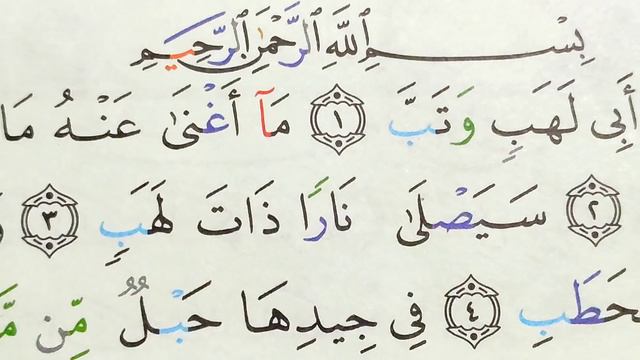 بِسْمِ اللَّهِ الرَّحْمَٰنِ الرَّحِيمِ
أَبِي لَهَبٍ وَتَبَّ ١ مَآ أَغْنَىٰ عَنْهُ مَا
٢ سَيَصْلَىٰ نَارًا ذَاتَ لَهَبٍ ٣
حَطَبِ ٤ فِي جِيدِهَا حَبْلٌ مِّن